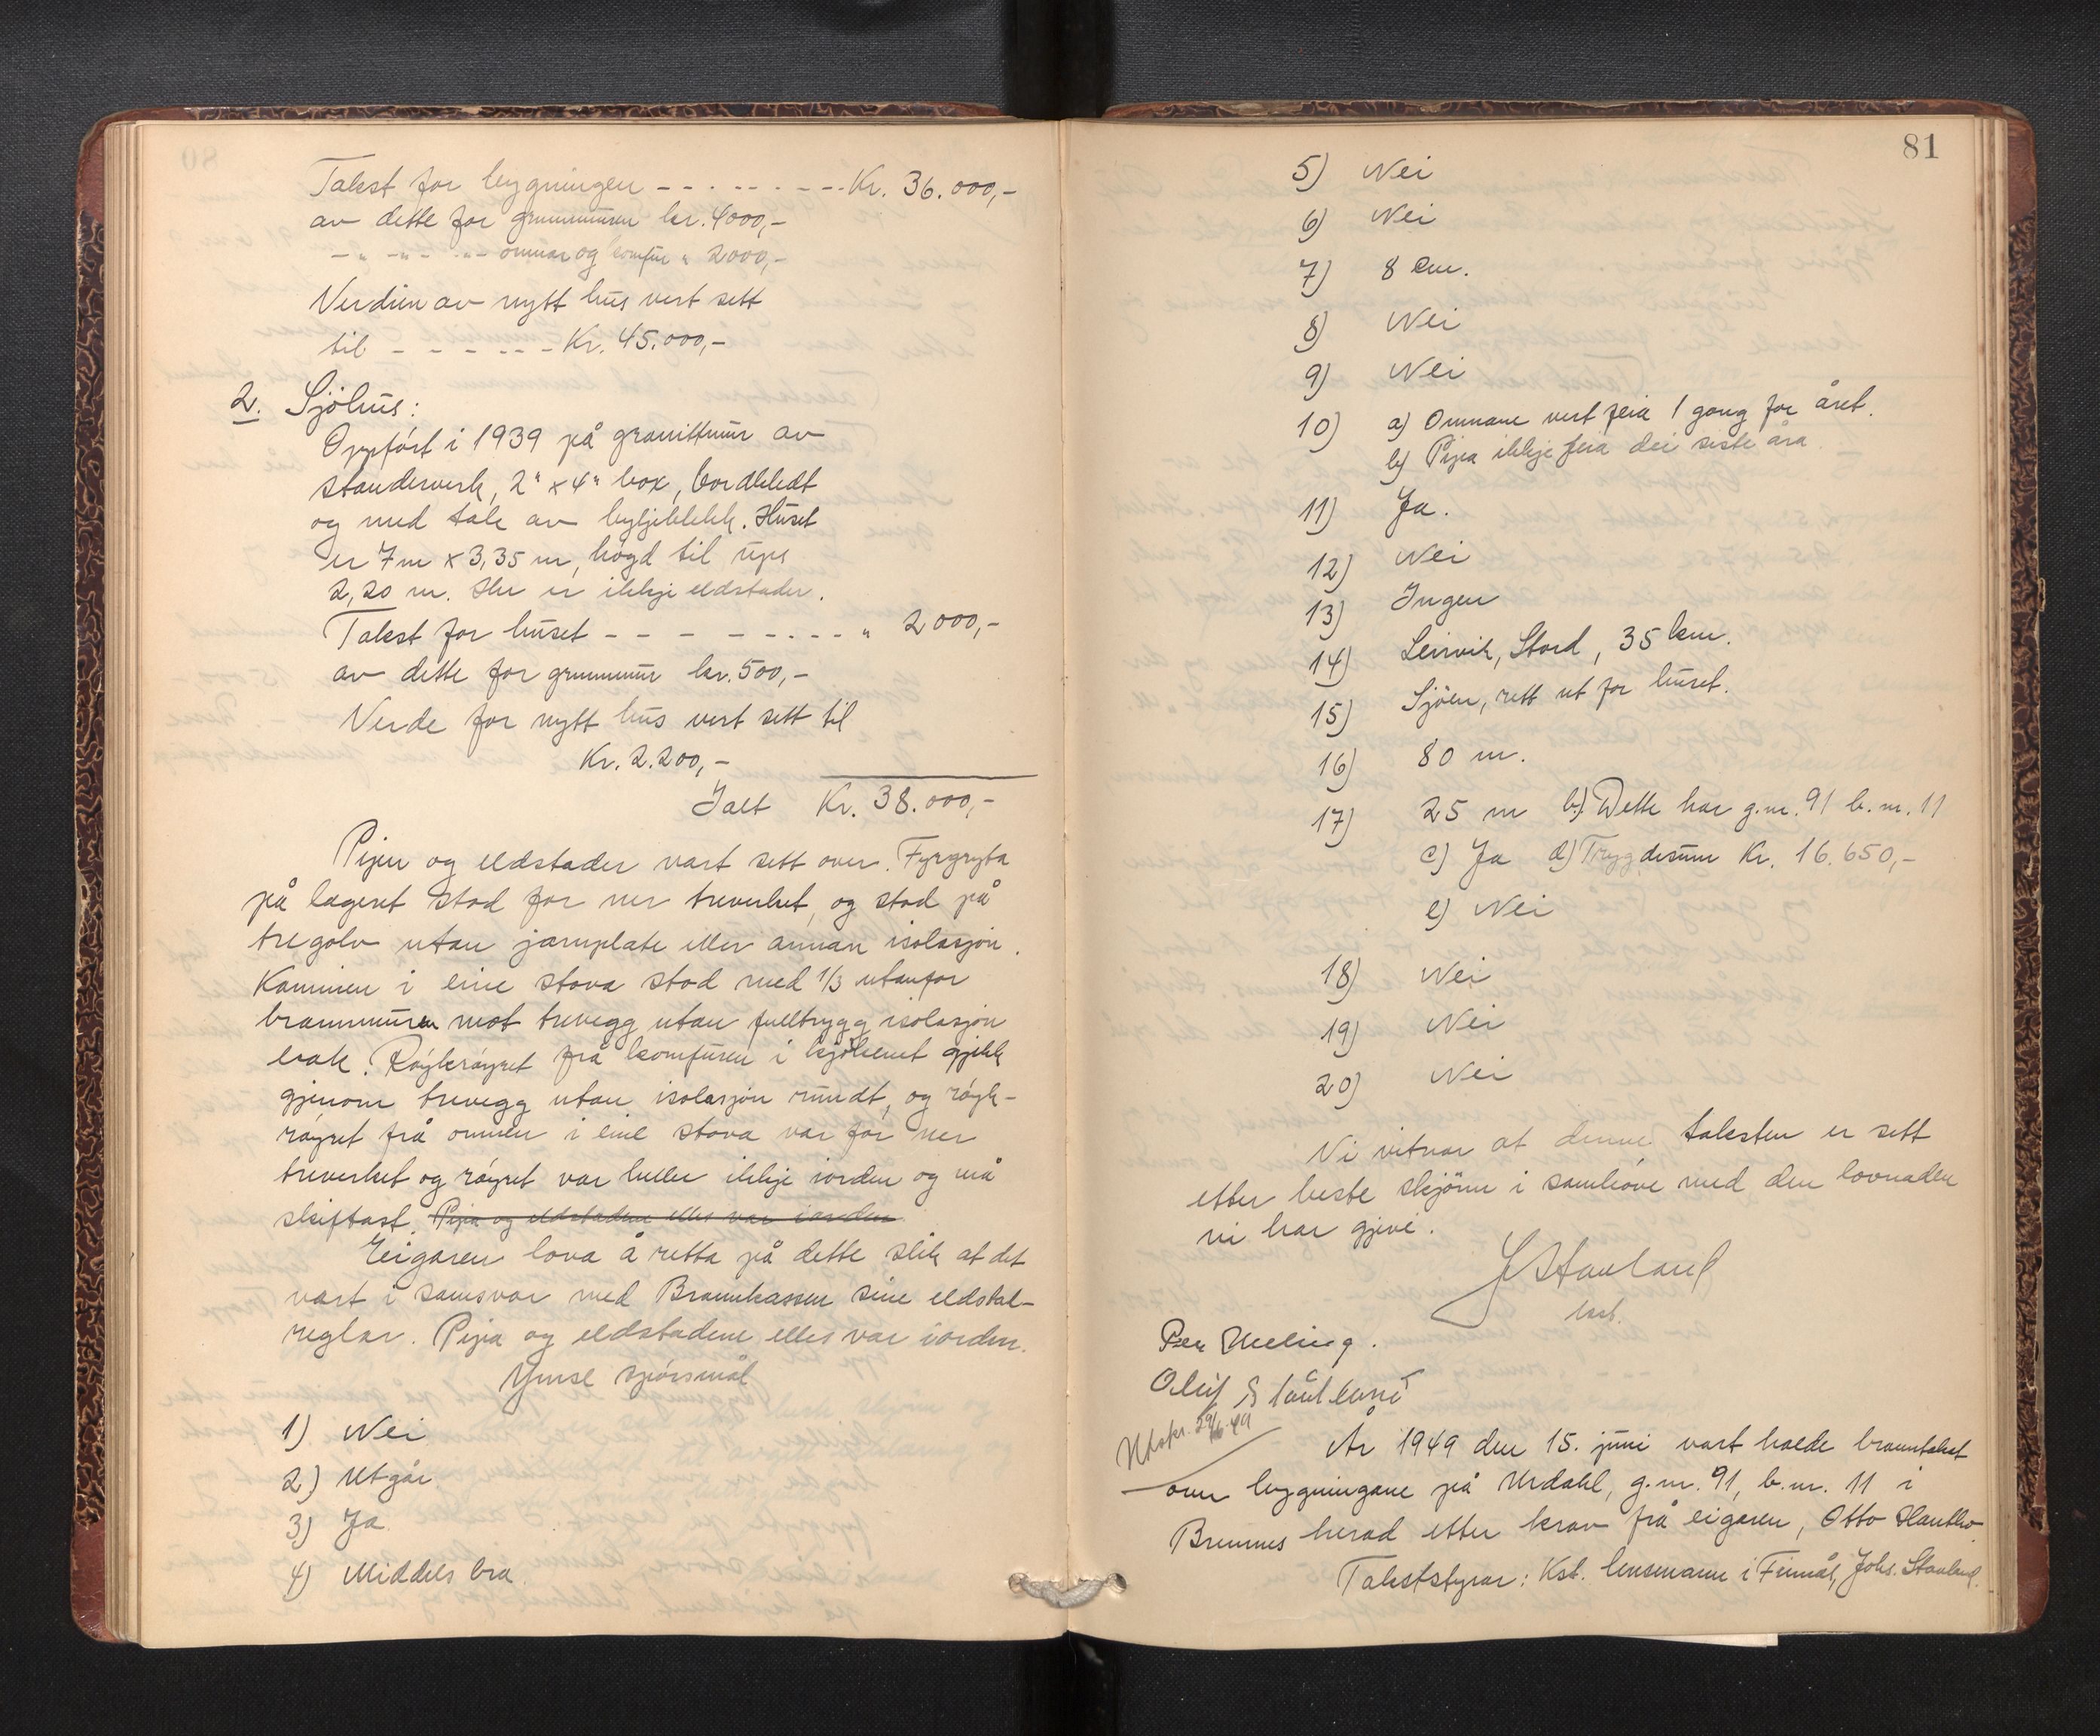 Takst for bygningen - - - - - - - - Kr. 36.000,-
av dette for grunnmuren kr. 4000,-
- " - - " - - " - omnar og komfur " 2000,-
Verdien av nytt hus vert sett
til - - - - - - Kr. 45.000,-
2. Sjöhus:
Oppfört i 1939 på granittmur av
standerverk, 2" x 4" box, bordkledt
og med tak av bylgjeblekk. Huset
er 7 m x 3,35 m, högd til ups
2,20 m. Her er ikkje eldstader.
Takst for huset - - - - - - - - - " 2000,-
av dette for grunnmur kr. 500,-
Verde for nytt hus vert sett til
Kr. 2.200,-
Ialt Kr. 38.000,-
Pipen og eldstader vart sett over. Fyrgryta
på lageret stod for ner treverket, og stod på
tregolv utan jarnplate eller annan isolasjon.
Kaminen i eine stova stod med 1/3 utanfor
brannmuren mot trevegg utan fulltrygg isolasjon
bak. Röykröyret frå komfuren i kjökenet gjekk
gjenom trevegg utan isolasjon rundt, og röyk-
röyret frå omnen i eine stova var for ner
treverket og röyret var heller ikkje iorden og må
skiftast. Pipa og eldstadene elles var iorden.
Eigaren lova å retta på dette slik at det
vart i samsvar med Brannkassen sine eldstad-
reglar. Pipa og eldstadene elles var iorden.
Ymse spörsmål
1) Nei
2) Utgår
3) Ja
4) Middels bra
81
5) Nei
6) Nei
7) 8 cm.
8) Nei
9) Nei
10) a) Omnane vert feia 1 gong for året.
b) Pipa ikkje feia dei siste åra
11) Ja.
12) Nei
13) Ingen
14) Leirvik, Stord, 35 km.
15) Sjöen, rett ut for huset.
16) 80 m.
17) 25 m b) Dette har g.nr. 91 b.nr. 11
c) Ja d) Trygdesum Kr. 16.650,-
e) Nei
18) Nei
19) Nei
20) Nei
Vi vitnar at denne taksten er sett
etter beste skjönn i samhöve med den lovnaden
vi har gjeve.
J Stauland
kst.
Per Meling.
Oluf Stautland
Utskr. 29/6-49
År 1949 den 15. juni vart halde branntakst
over bygningane på Urdahl, g.nr. 91, b.nr. 11 i
Bremnes herad etter krav frå eigaren, Otto
Takststyrar: Kst. lensmann i Finnås, Johs. Stauland.